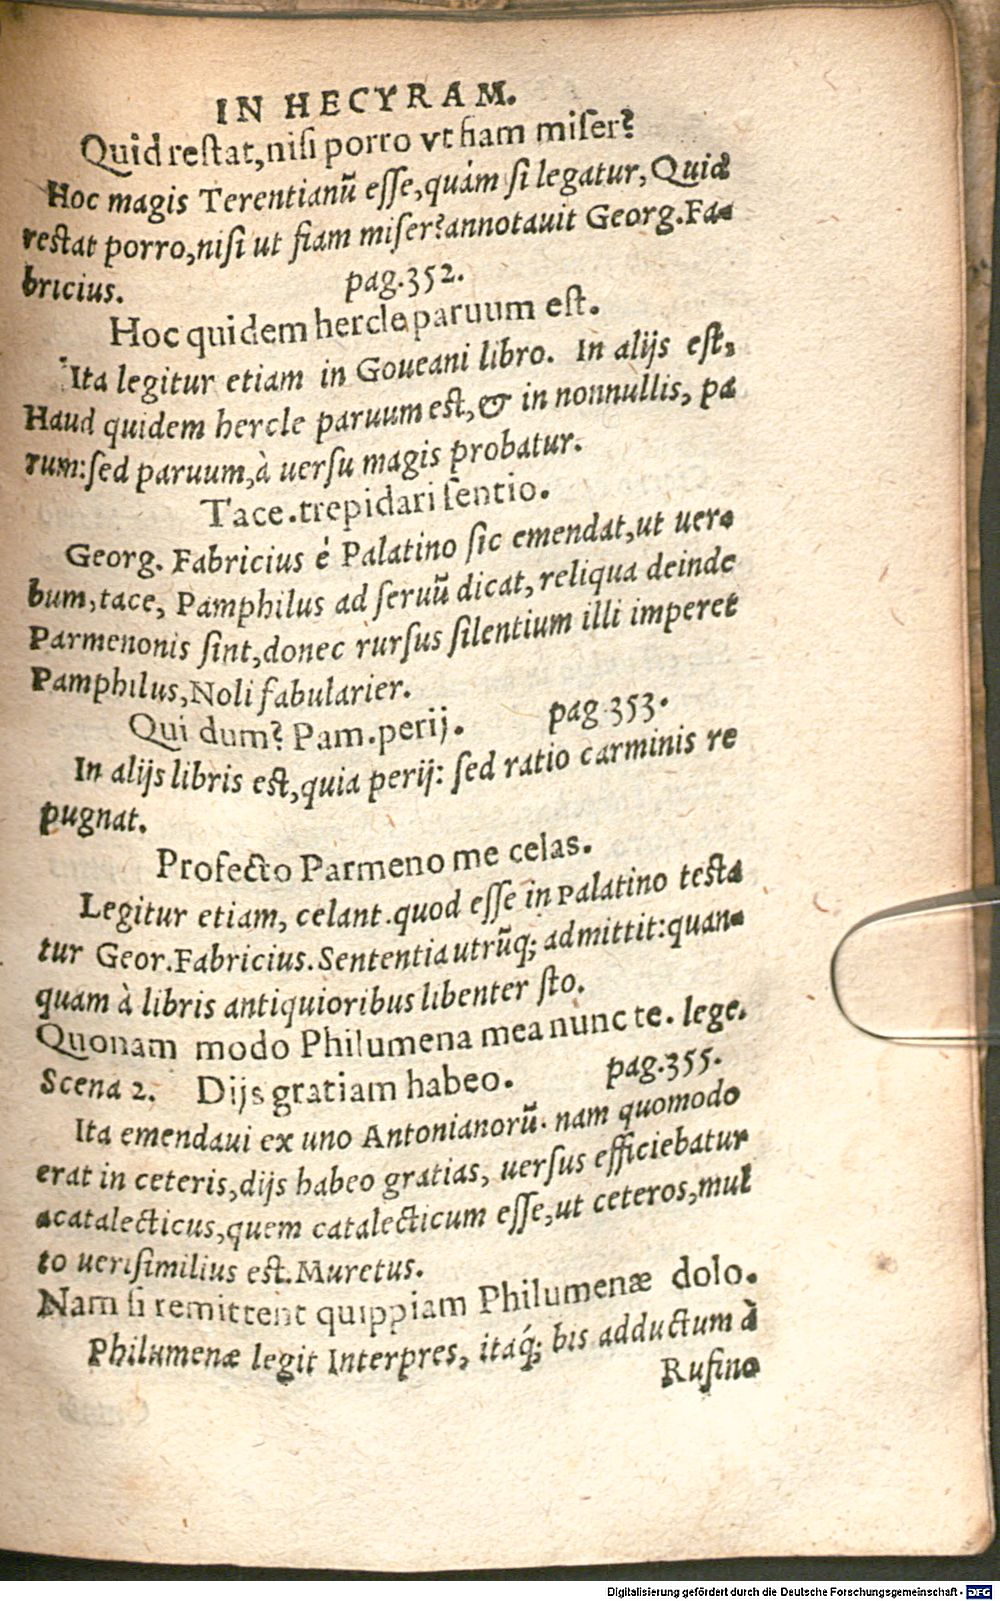 IN HECYRAM.
Quid restat, nisi porro vt fiam miser?
Hoc magis Terentianũ esse, quám si legatur, Quid
restat porro, nisi ut fiam miser? annotauit Georg. Fa-
bricius. pag. 352.
Hoc quidem hercle paruum est.
Ita legitur etiam in Goueani libro. In alijs est,
Haud quidem hercle paruum est, & in nonnullis, pa
rum: sed paruum, à uersu magis probatur.
Tace. trepidari sentio.
Georg. Fabricius é Palatino sic emendat, ut uer-
bum, tace, Pamphilus ad seruũ dicat, reliqua deinde
Parmenonis sint, donec rursus silentium illi imperet
Pamphilus, Noli fabularier.
Qui dum? Pam. perij. pag. 353.
In alijs libris est, quia perij: sed ratio carminis re
pugnat.
Profecto Parmeno me celas.
Legitur etiam, celant. quod esse in Palatino testa
tur Geor. Fabricius. Sententia utrũq; admittit: quan-
quam à libris antiquioribus libenter sto.
Quonam modo Philumena mea nunc te. lege.
Scena 2. Dijs gratiam habeo. pag. 355.
Ita emendaui ex uno Antonianorũ. nam quomodo
erat in ceteris, dijs habeo gratias, uersus efficiebatur
acatalecticus, quem catalecticum esse, ut ceteros, mul
to uerisimilius est. Muretus.
Nam si remittent quippiam Philumenæ dolo.
Philumenæ legit Interpres, itaq́; bis adductum à
Rufino
Digitalisierung gefördert durch die Deutsche Forschungsgemeinschaft - DFG